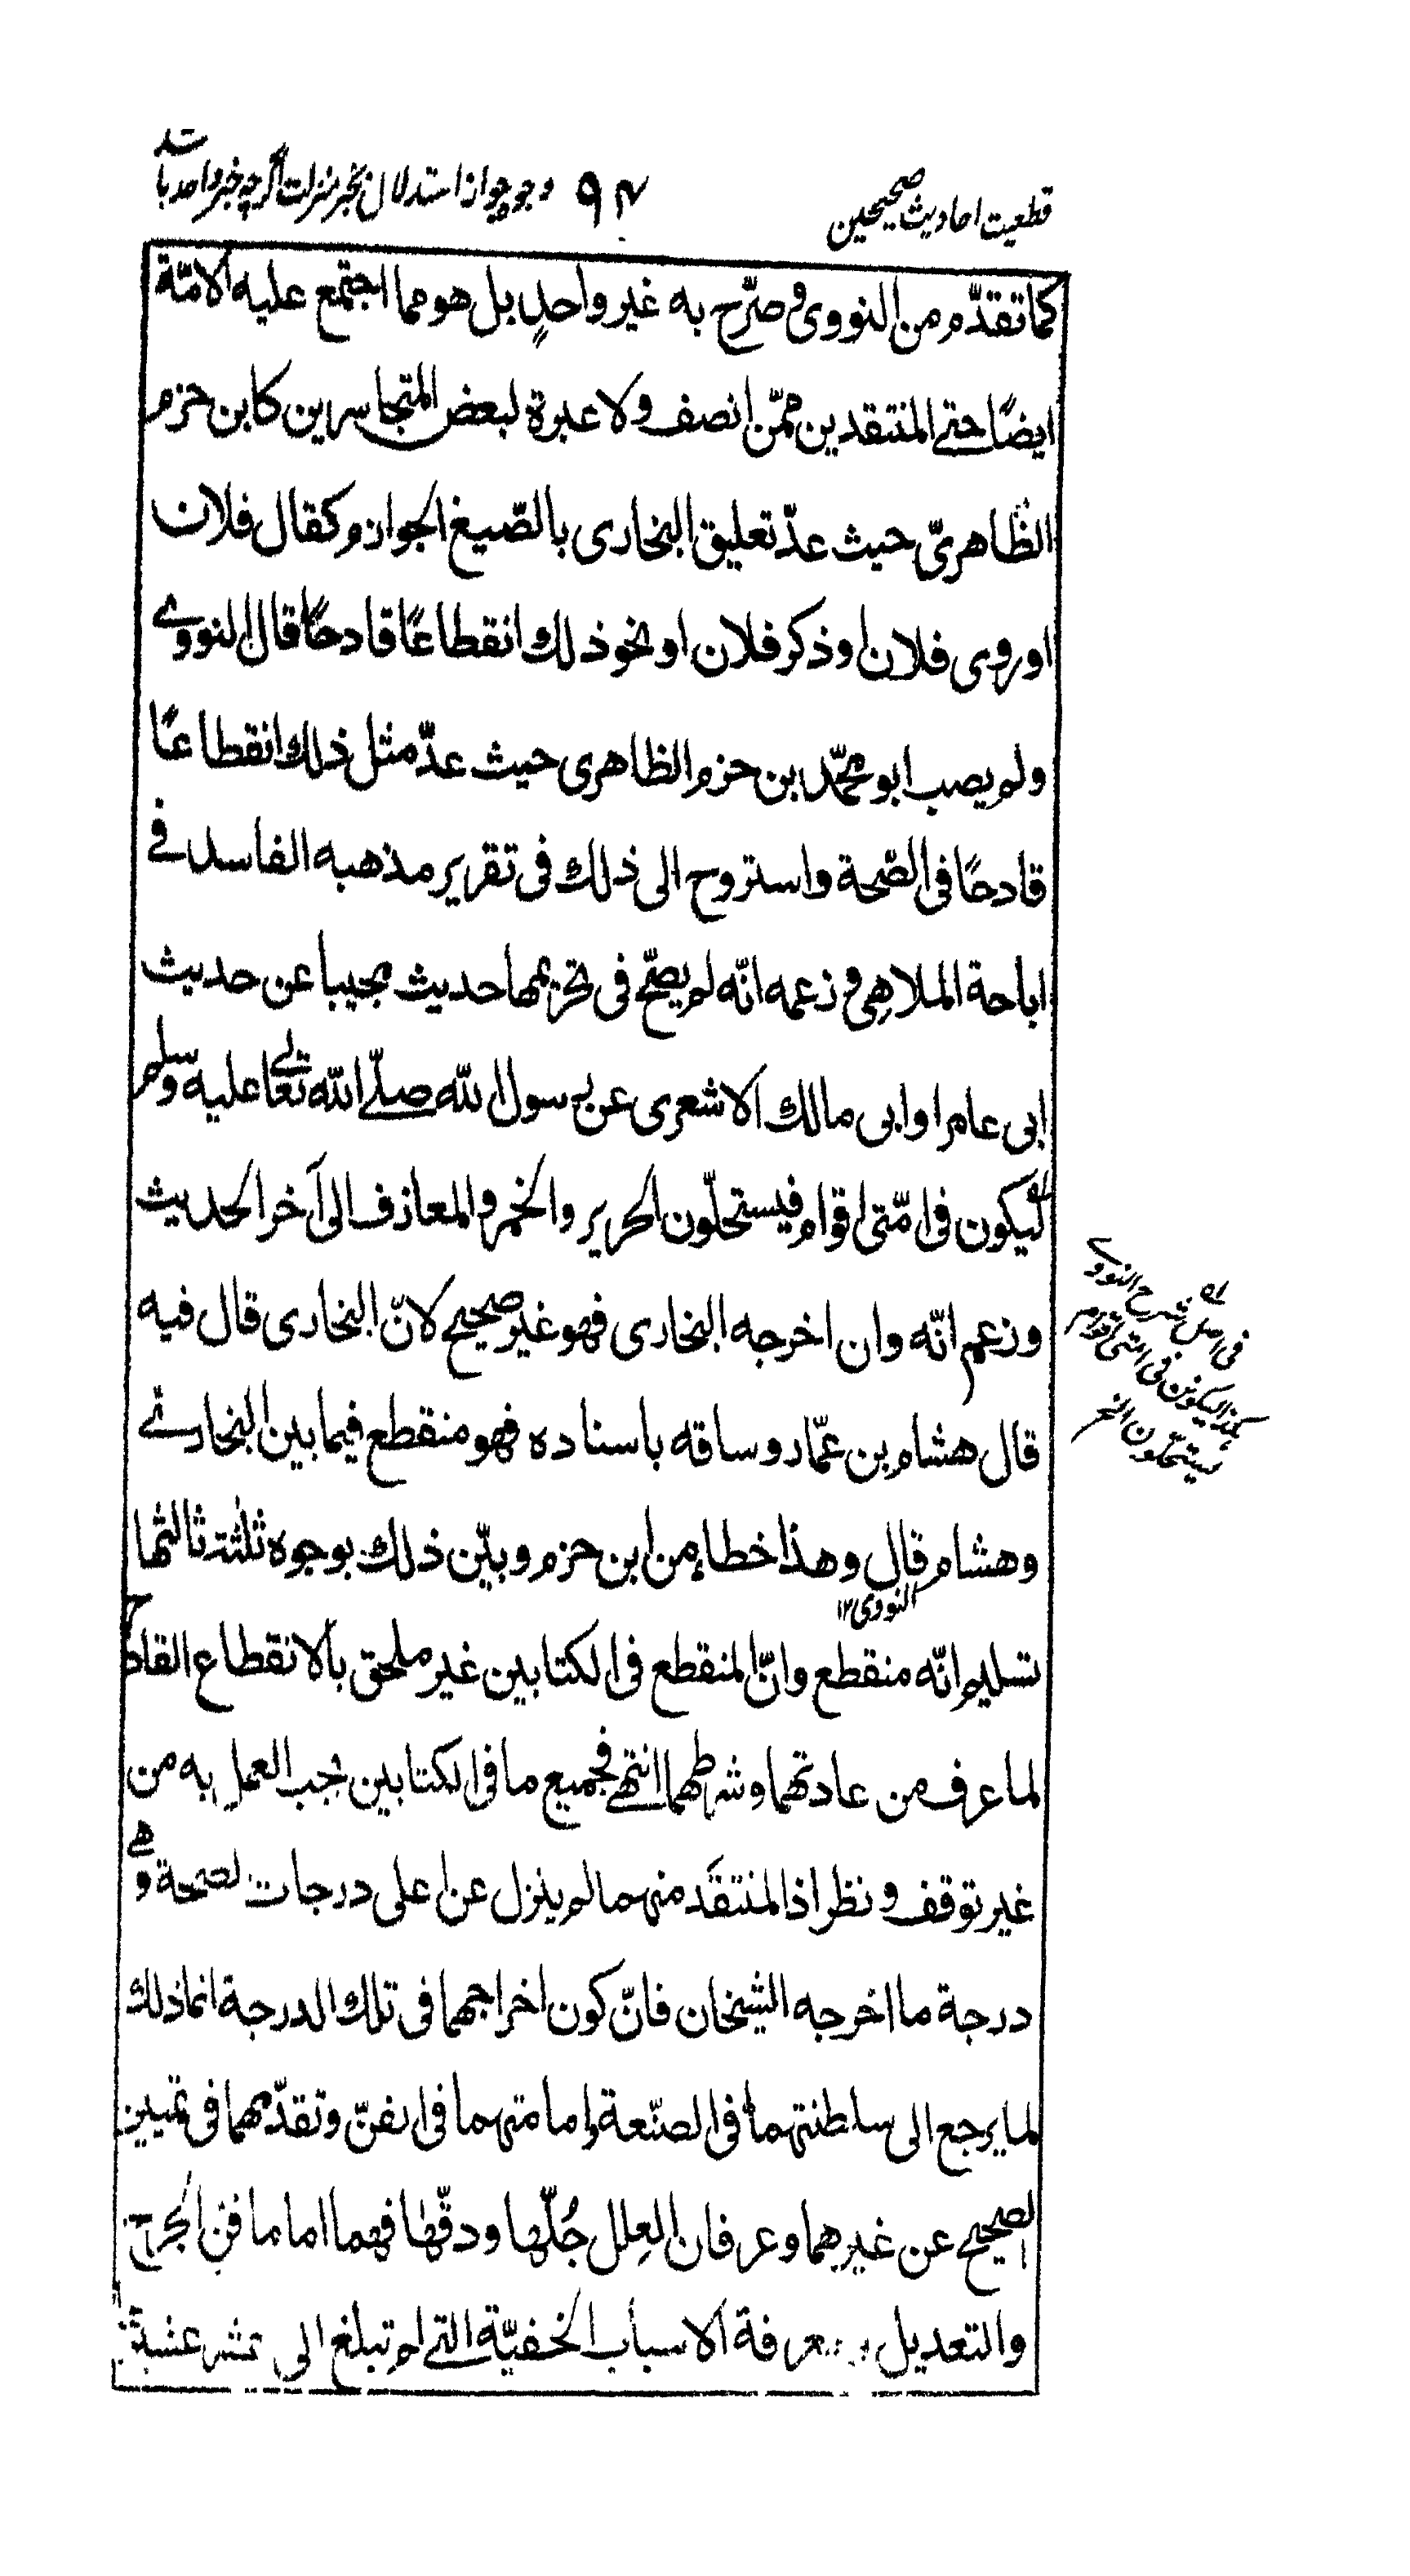 قطعیت احادیث صحیحین
۹۴
وجوه جواز استدلال بخبر منزلت اگرچه خبر واحد باشد
كما تقدّم من النووى وصرّح به غير واحدٍ بل هو مما اجتمع عليه الامّة
ايضًا حتى المنتقدين ممّن انصف ولا عبرة لبعض المتجاسرين كابن حزم
الظاهرىّ حيث عدّ تعليق البخارى بالصّيغ الجوازم كقال فلان
او روى فلان او ذكر فلان او نحو ذلك انقطاعًا قادحًا قال النووى
ولم يصب ابو محمّد بن حزم الظاهرى حيث عدّ مثل ذلك انقطاعًا
قادحًا فى الصّحة واستروح الى ذلك فى تقرير مذهبه الفاسد فى
اباحة الملاهى وزعمه انّه لم يصحّ فى تحريمها حديث مجيبا عن حديث
ابى عامر او ابى مالك الاشعرى عن رسول الله صلّى الله تعالى عليه وسلم
ليكون فى امّتى اقوام فيستحلّون الحرير والخمر والمعازف الى آخر الحديث
وزعم انّه وان اخرجه البخارى فهو غير صحيح لانّ البخارى قال فيه
قال هشام بن عمّار وساقه باسناده فهو منقطع فيما بين البخارى
وهشام قال وهذا خطاء من ابن حزم وبيّن ذلك بوجوه ثلثة ثالثها
النووى ۱۲
تسليم انّه منقطع وانّ المنقطع فى الكتابين غير ملحق بالانقطاع القادح
لما عرف من عادتهما وشرطهما انتهى فجميع ما فى الكتابين يجب العمل به من
غير توقف ونظر اذ المنتقَد منهما لم ينزل عن اعلى درجات الصحة وهى
درجة ما اخرجه الشيخان فانّ كون اخراجهما فى تلك الدرجة انما ذلك
لما يرجع الى سلطنتهما فى الصنّعة وامامتهما فى الفنّ وتقدّمهما فى تميين
الصحيح عن غيرهما وعرفان العلل جُلّها ودقّها فهما اماما فنّ الجرح
والتعديل ومعرفة الاسباب الخفيّة التى لم تبلغ الى عشر عشيرة
فى اصل شرح النووى
هكذا ليكونن فى امتى اقوام
يستحلون الخ